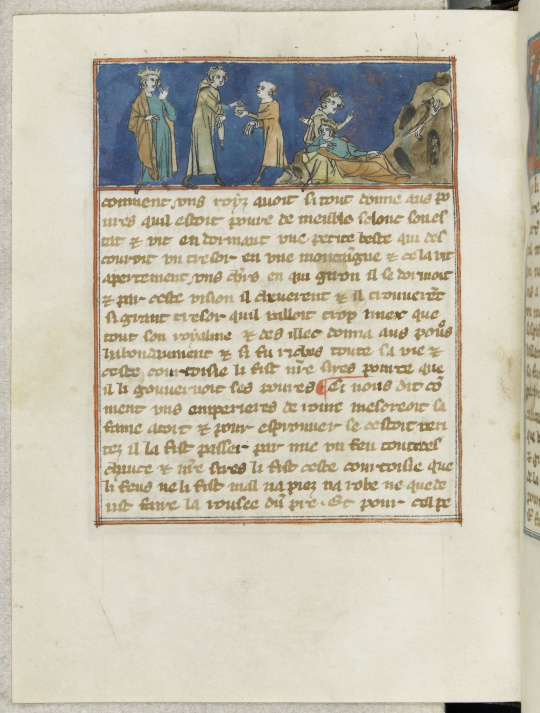 comment uns roys avoit si tout donne aus po
vres quil estoit povre de meuble selonc son es
tat & vit en dormant une petite beste qui des
couvroit un tresor en une montaigne & ce la vit
apertement uns chrs en qui giron il se dormoit
& par ceste vision il chiuerent & il trouuerēt
si grant tresor quil valloit trop miex que
tout son royalme & des illec donna aus pou9s
habondamment & si fu riches toute sa vie &
ceste courtoisie li fist nr̄e sires pource que
il li gouvernoit ses povres Ci nous dit cō
ment uns emperieres de rome mescreoit sa
fame a tort & pour esprouver se cestoit veri
tez il la fist passer par mie un feu toute des
chauce & nr̄e sires li fist ceste courtoisie que
li feus ne li fist mal na piez na robe ne que de
ust faire la rousee du pre. Et pour ce lpe